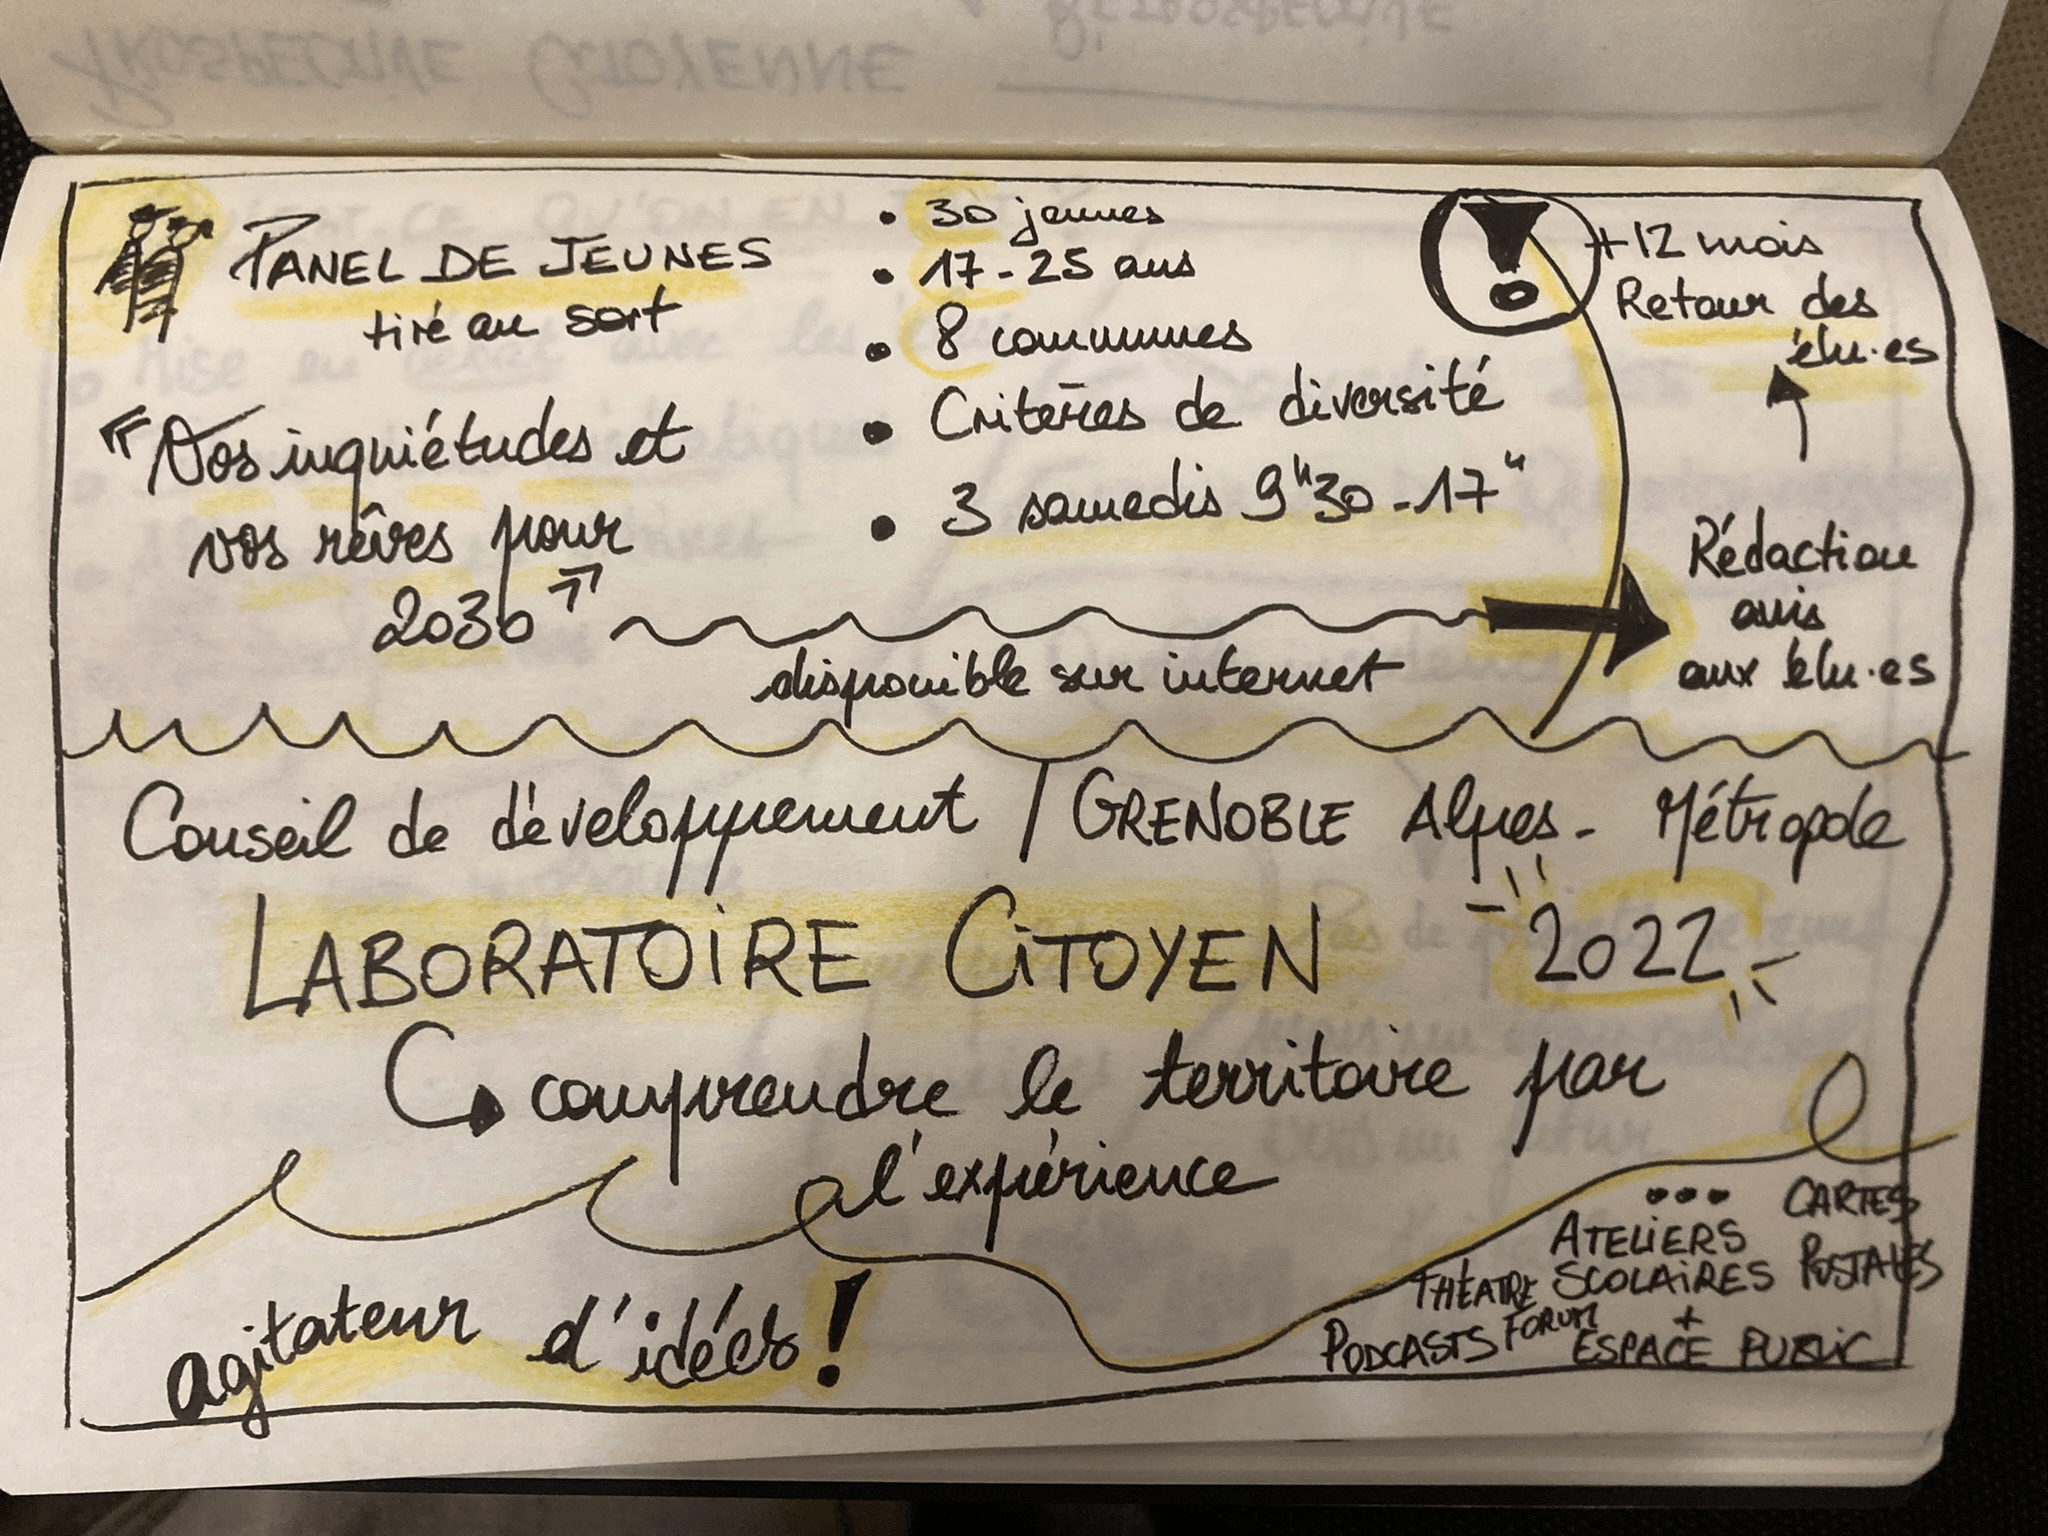 PROSPECTIVE CITOYENNE
PANEL DE JEUNES
tiré au sort
« Vos inquiétudes et
vos rêves pour
2030 »
• 30 jeunes
• 17-25 ans
• 8 communes
• Critères de diversité
• 3 samedis 9h30-17h
disponible sur internet
Rédaction
avis
aux élu·es
+12 mois
Retour des
élu·es
Conseil de développement / GRENOBLE Alpes-Métropole
LABORATOIRE CITOYEN 2022
comprendre le territoire par
l'expérience
agitateur d'idées !
PODCASTS
THÉATRE
FORUM
...
ATELIERS
SCOLAIRES
+
ESPACE PUBLIC
CARTES
POSTALES